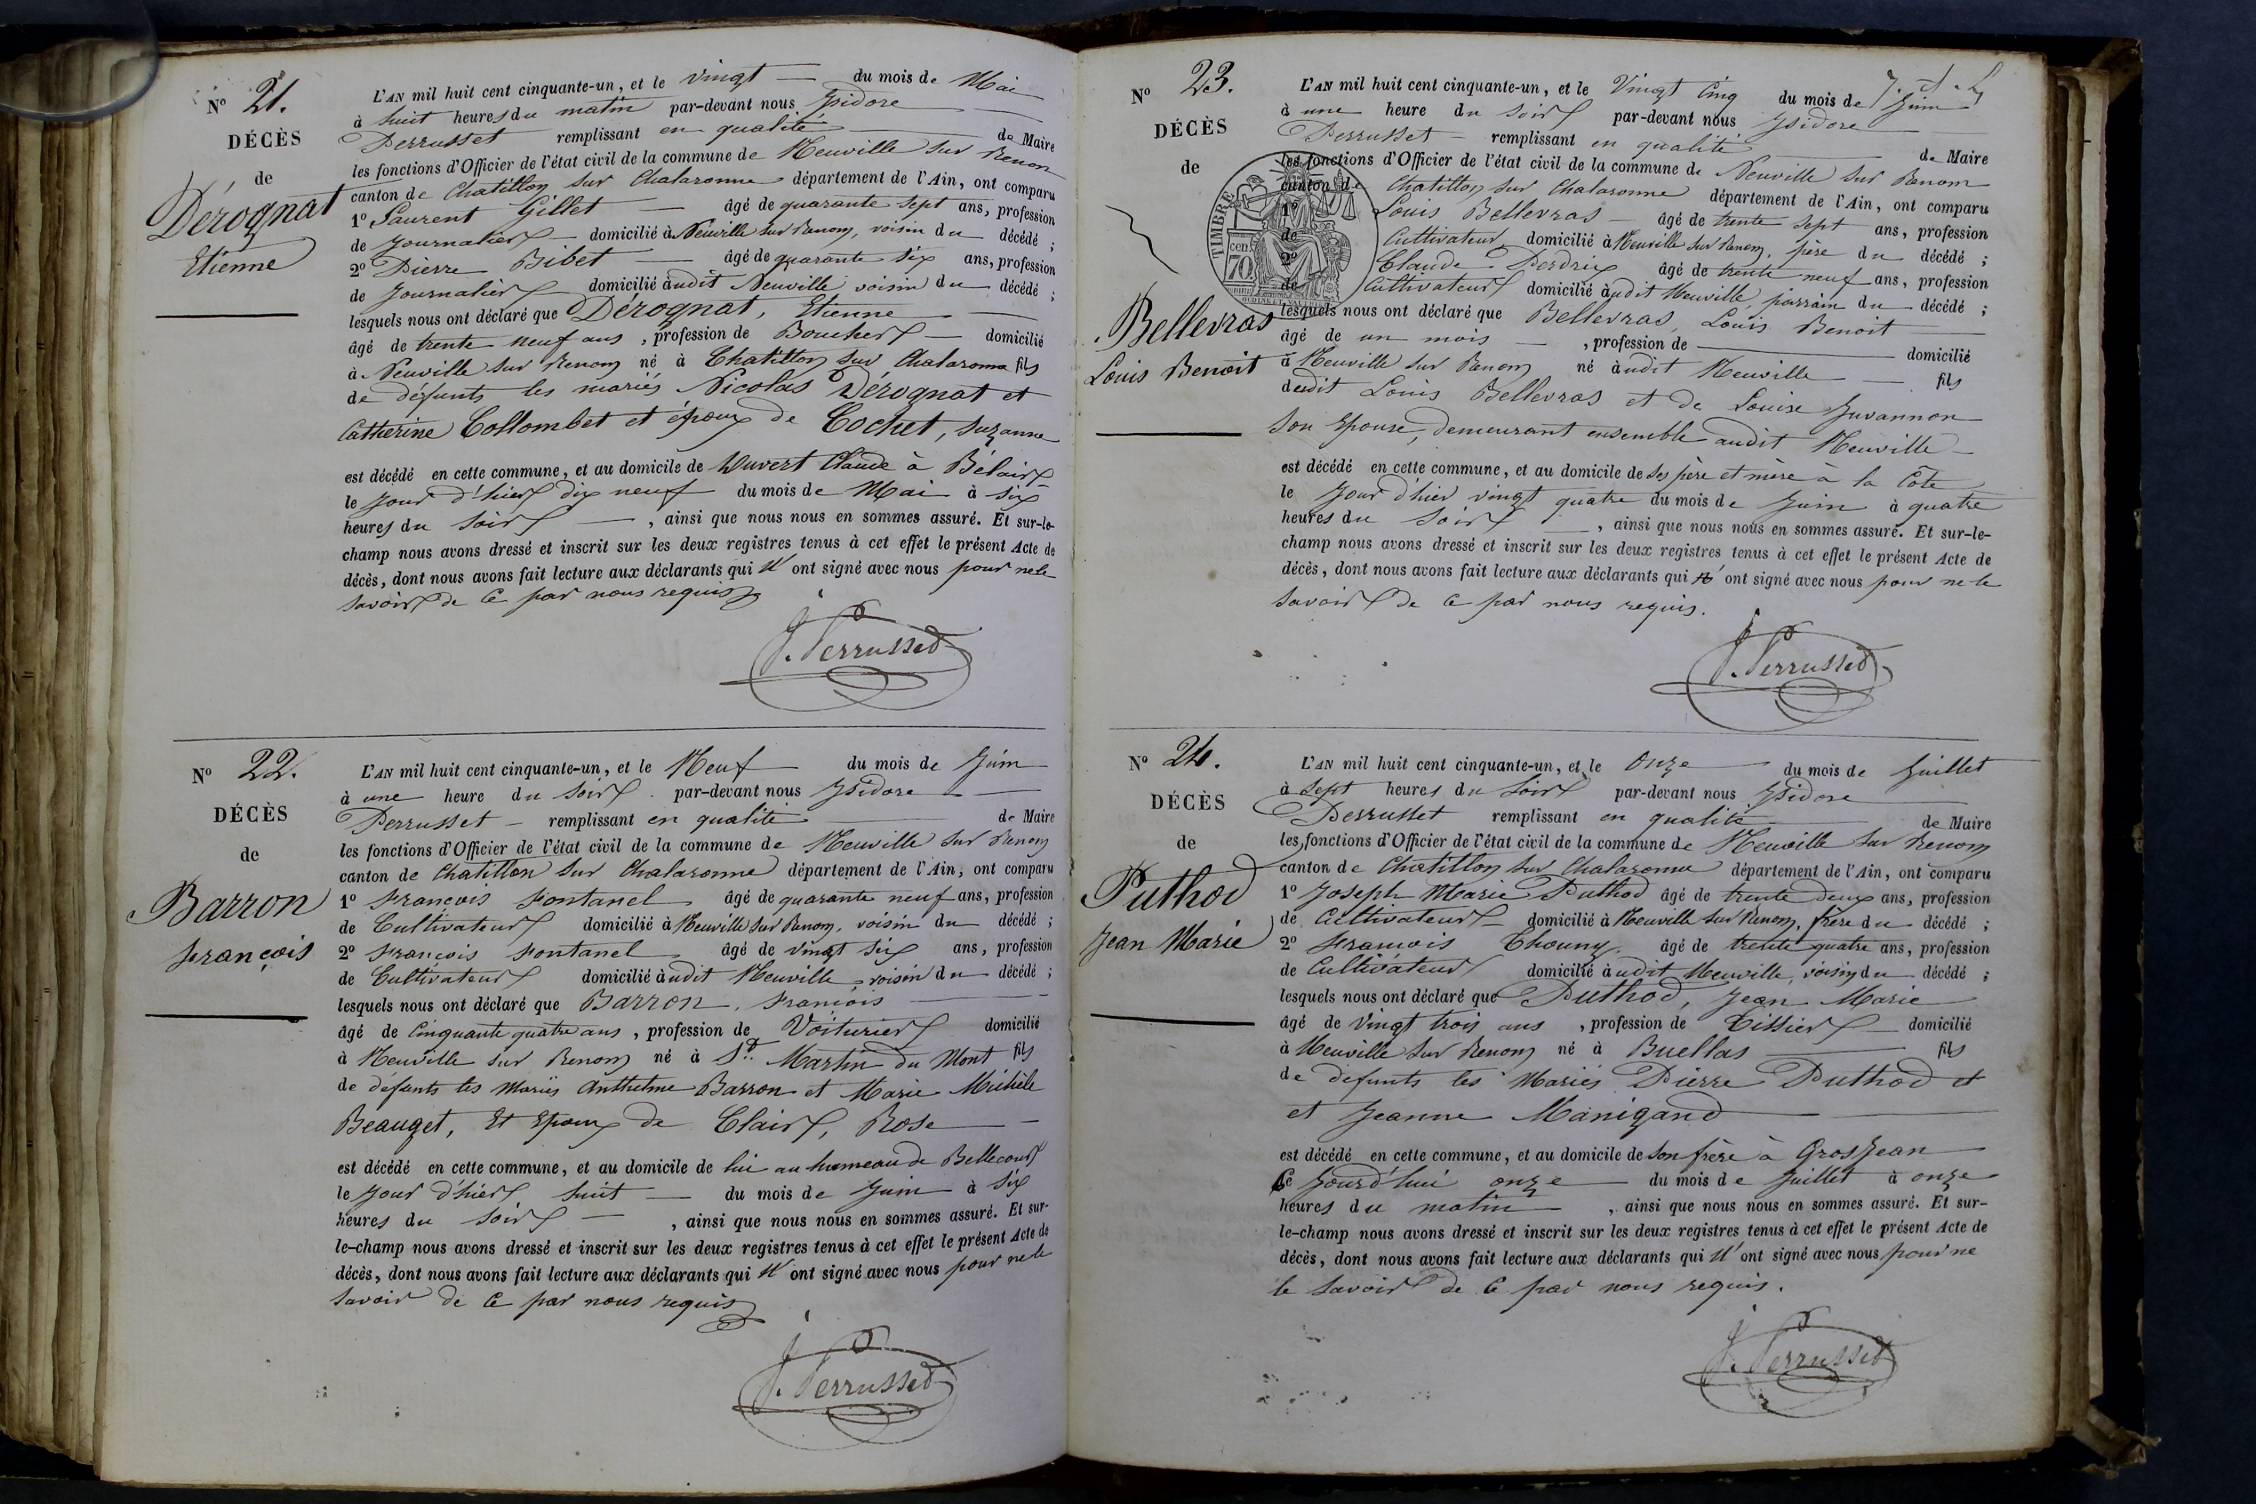 N° 21.
DÉCÈS
de
Dérognat
Etienne
L'AN mil huit cent cinquante-un, et le vingt du mois de Mai
à huit heures du matin par-devant nous Ysidore
Perrusset remplissant en qualité de Maire
les fonctions d'Officier de l'état civil de la commune de Neuville sur Renon
canton de Chatillon sur Chalaronne département de l'Ain, ont comparu
1° Laurent Gillet âgé de quarante sept ans, profession
de Journalier domicilié à Neuville sur Renom, voisin du décédé ;
2° Pierre Bibet âgé de quarante six ans, profession
de Journalier domicilié audit Neuville voisin du décédé ;
lesquels nous ont déclaré que Dérognat, Etienne
âgé de trente neuf ans , profession de Boucher domicilié
à Neuville sur Renom né à Chatillon sur Chalaronne fils
de défunts les mariés Nicolas Dérognat et
Catherine Collombet et époux de Cochet, Suzanne
est décédé en cette commune, et au domicile de Duvert Claude à Bélair
le jour d'hier dix neuf du mois de Mai à six
heures du soir , ainsi que nous nous en sommes assuré. Et sur-le-
champ nous avons dressé et inscrit sur les deux registres tenus à cet effet le présent Acte de
décès, dont nous avons fait lecture aux déclarants qui n'ont signé avec nous pour ne le
savoir de ce par nous requis
J. Perrusset
N° 22.
DÉCÈS
de
Barron
françois
L'AN mil huit cent cinquante-un, et le Neuf du mois de Juin
à une heure du soir par-devant nous Ysidore
Perrusset remplissant en qualité de Maire
les fonctions d'Officier de l'état civil de la commune de Neuville sur Renom
canton de Chatillon sur Chalaronne département de l'Ain, ont comparu
1° François Fontanel âgé de quarante neuf ans, profession
de Cultivateur domicilié à Neuville sur Renom, voisin du décédé ;
2° François Fontanel âgé de vingt six ans, profession
de Cultivateur domicilié audit Neuville voisin du décédé ;
lesquels nous ont déclaré que Barron, François
âgé de Cinquante quatre ans , profession de Voiturier domicilié
à Neuville sur Renom né à St. Martin du Mont fils
de défunts les Mariés Anthelme Barron et Marie Michèle
Beauget, Et Epoux de Clair, Rose
est décédé en cette commune, et au domicile de lui au hameau de Bellecour
le jour d'hier huit du mois de Juin à six
heures du soir , ainsi que nous nous en sommes assuré. Et sur-
le-champ nous avons dressé et inscrit sur les deux registres tenus à cet effet le présent Acte de
décès, dont nous avons fait lecture aux déclarants qui n'ont signé avec nous pour ne le
savoir de ce par nous requis
J. Perrusset
N° 23.
DÉCÈS
de
Bellevras
Louis Benoit
TIMBRE
70 cen
L'AN mil huit cent cinquante-un, et le Vingt Cinq du mois de Juin
à une heure du soir par-devant nous Ysidore
Perrusset remplissant en qualité de Maire
les fonctions d'Officier de l'état civil de la commune de Neuville sur Renom
canton de Chatillon sur Chalaronne département de l'Ain, ont comparu
1° Louis Bellevras âgé de trente sept ans, profession
de Cultivateur domicilié à Neuville sur Renom, père du décédé ;
2° Claude Perdrix âgé de trente neuf ans, profession
de Cultivateur domicilié audit Neuville, parrain du décédé ;
lesquels nous ont déclaré que Bellevras, Louis Benoit
âgé de un mois , profession de domicilié
à Neuville sur Renom né audit Neuville fils
dudit Louis Bellevras et de Louise Juvannon
son Epouse, demeurant ensemble audit Neuville
est décédé en cette commune, et au domicile de ses père et mère à la Côte
le jour d'hier vingt quatre du mois de Juin à quatre
heures du soir , ainsi que nous nous en sommes assuré. Et sur-le-
champ nous avons dressé et inscrit sur les deux registres tenus à cet effet le présent Acte de
décès, dont nous avons fait lecture aux déclarants qui n'ont signé avec nous pour ne le
savoir de ce par nous requis.
J. Perrusset
N° 24.
DÉCÈS
de
Puthod
Jean Marie
L'AN mil huit cent cinquante-un, et le Onze du mois de Juillet
à sept heures du soir par-devant nous Ysidore
Perrusset remplissant en qualité de Maire
les fonctions d'Officier de l'état civil de la commune de Neuville sur Renom
canton de Chatillon sur Chalaronne département de l'Ain, ont comparu
1° Joseph Marie Puthod âgé de trente deux ans, profession
de Cultivateur domicilié à Neuville sur Renom, frère du décédé ;
2° François Chouny âgé de trente quatre ans, profession
de Cultivateur domicilié audit Neuville, voisin du décédé ;
lesquels nous ont déclaré que Puthod, Jean Marie
âgé de Vingt trois ans , profession de Tissier domicilié
à Neuville sur Renom né à Buellas fils
de défunts les Mariés Pierre Puthod et
et Jeanne Manigand
est décédé en cette commune, et au domicile de son frère à Grosjean
Ce Jourd'hui onze du mois de Juillet à onze
heures du matin , ainsi que nous nous en sommes assuré. Et sur-
le-champ nous avons dressé et inscrit sur les deux registres tenus à cet effet le présent Acte de
décès, dont nous avons fait lecture aux déclarants qui n'ont signé avec nous pour ne
le savoir de ce par nous requis.
J. Perrusset